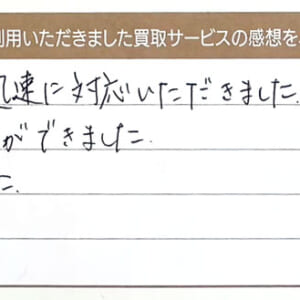 利用いただきました買取サービスの感想を
迅速に対応いただきました.
ができました.
た.